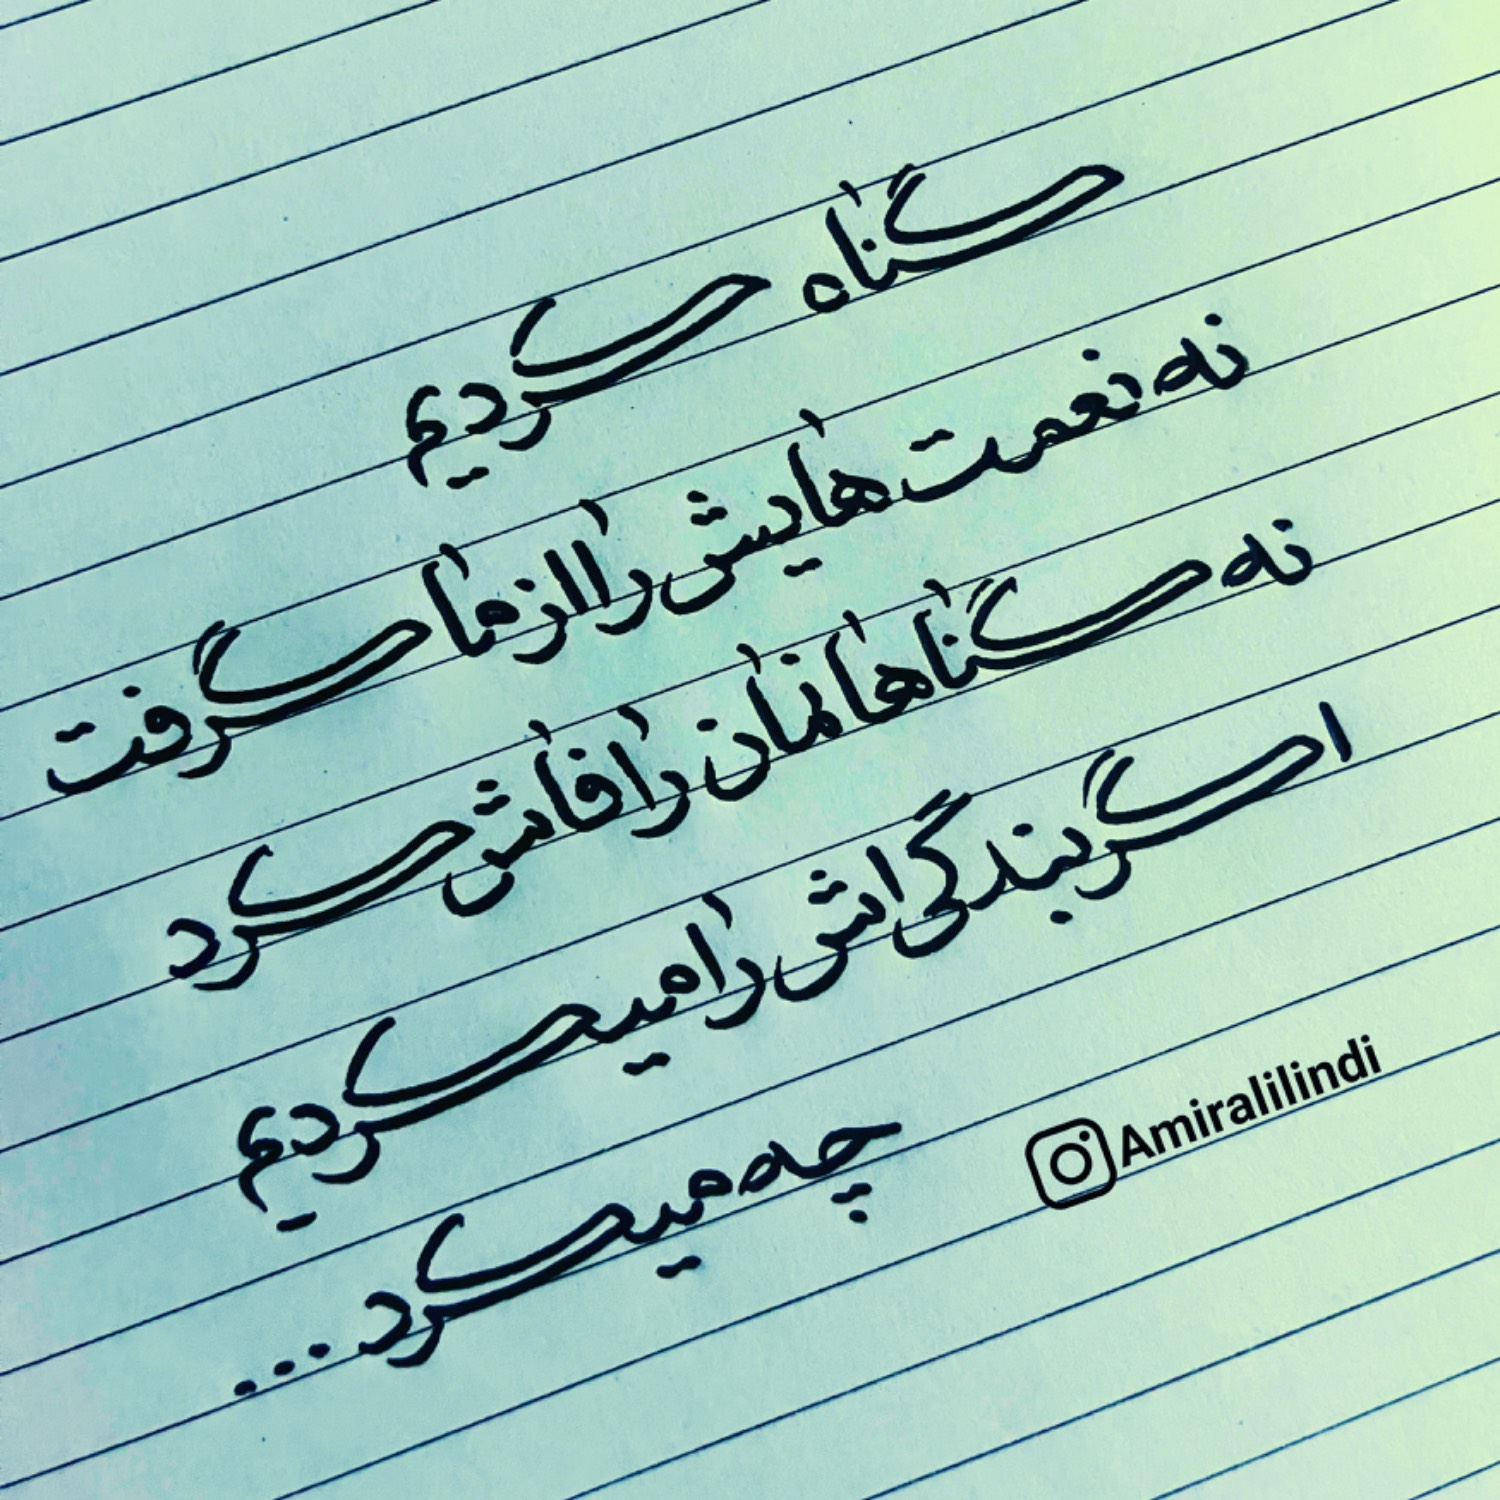 گناه کردیم
نه نعمت هایش را از ما گرفت
نه گناهانمان را فاش کرد
اگر بندگی اش را میکردیم
چه میکرد...
Amiralilindi